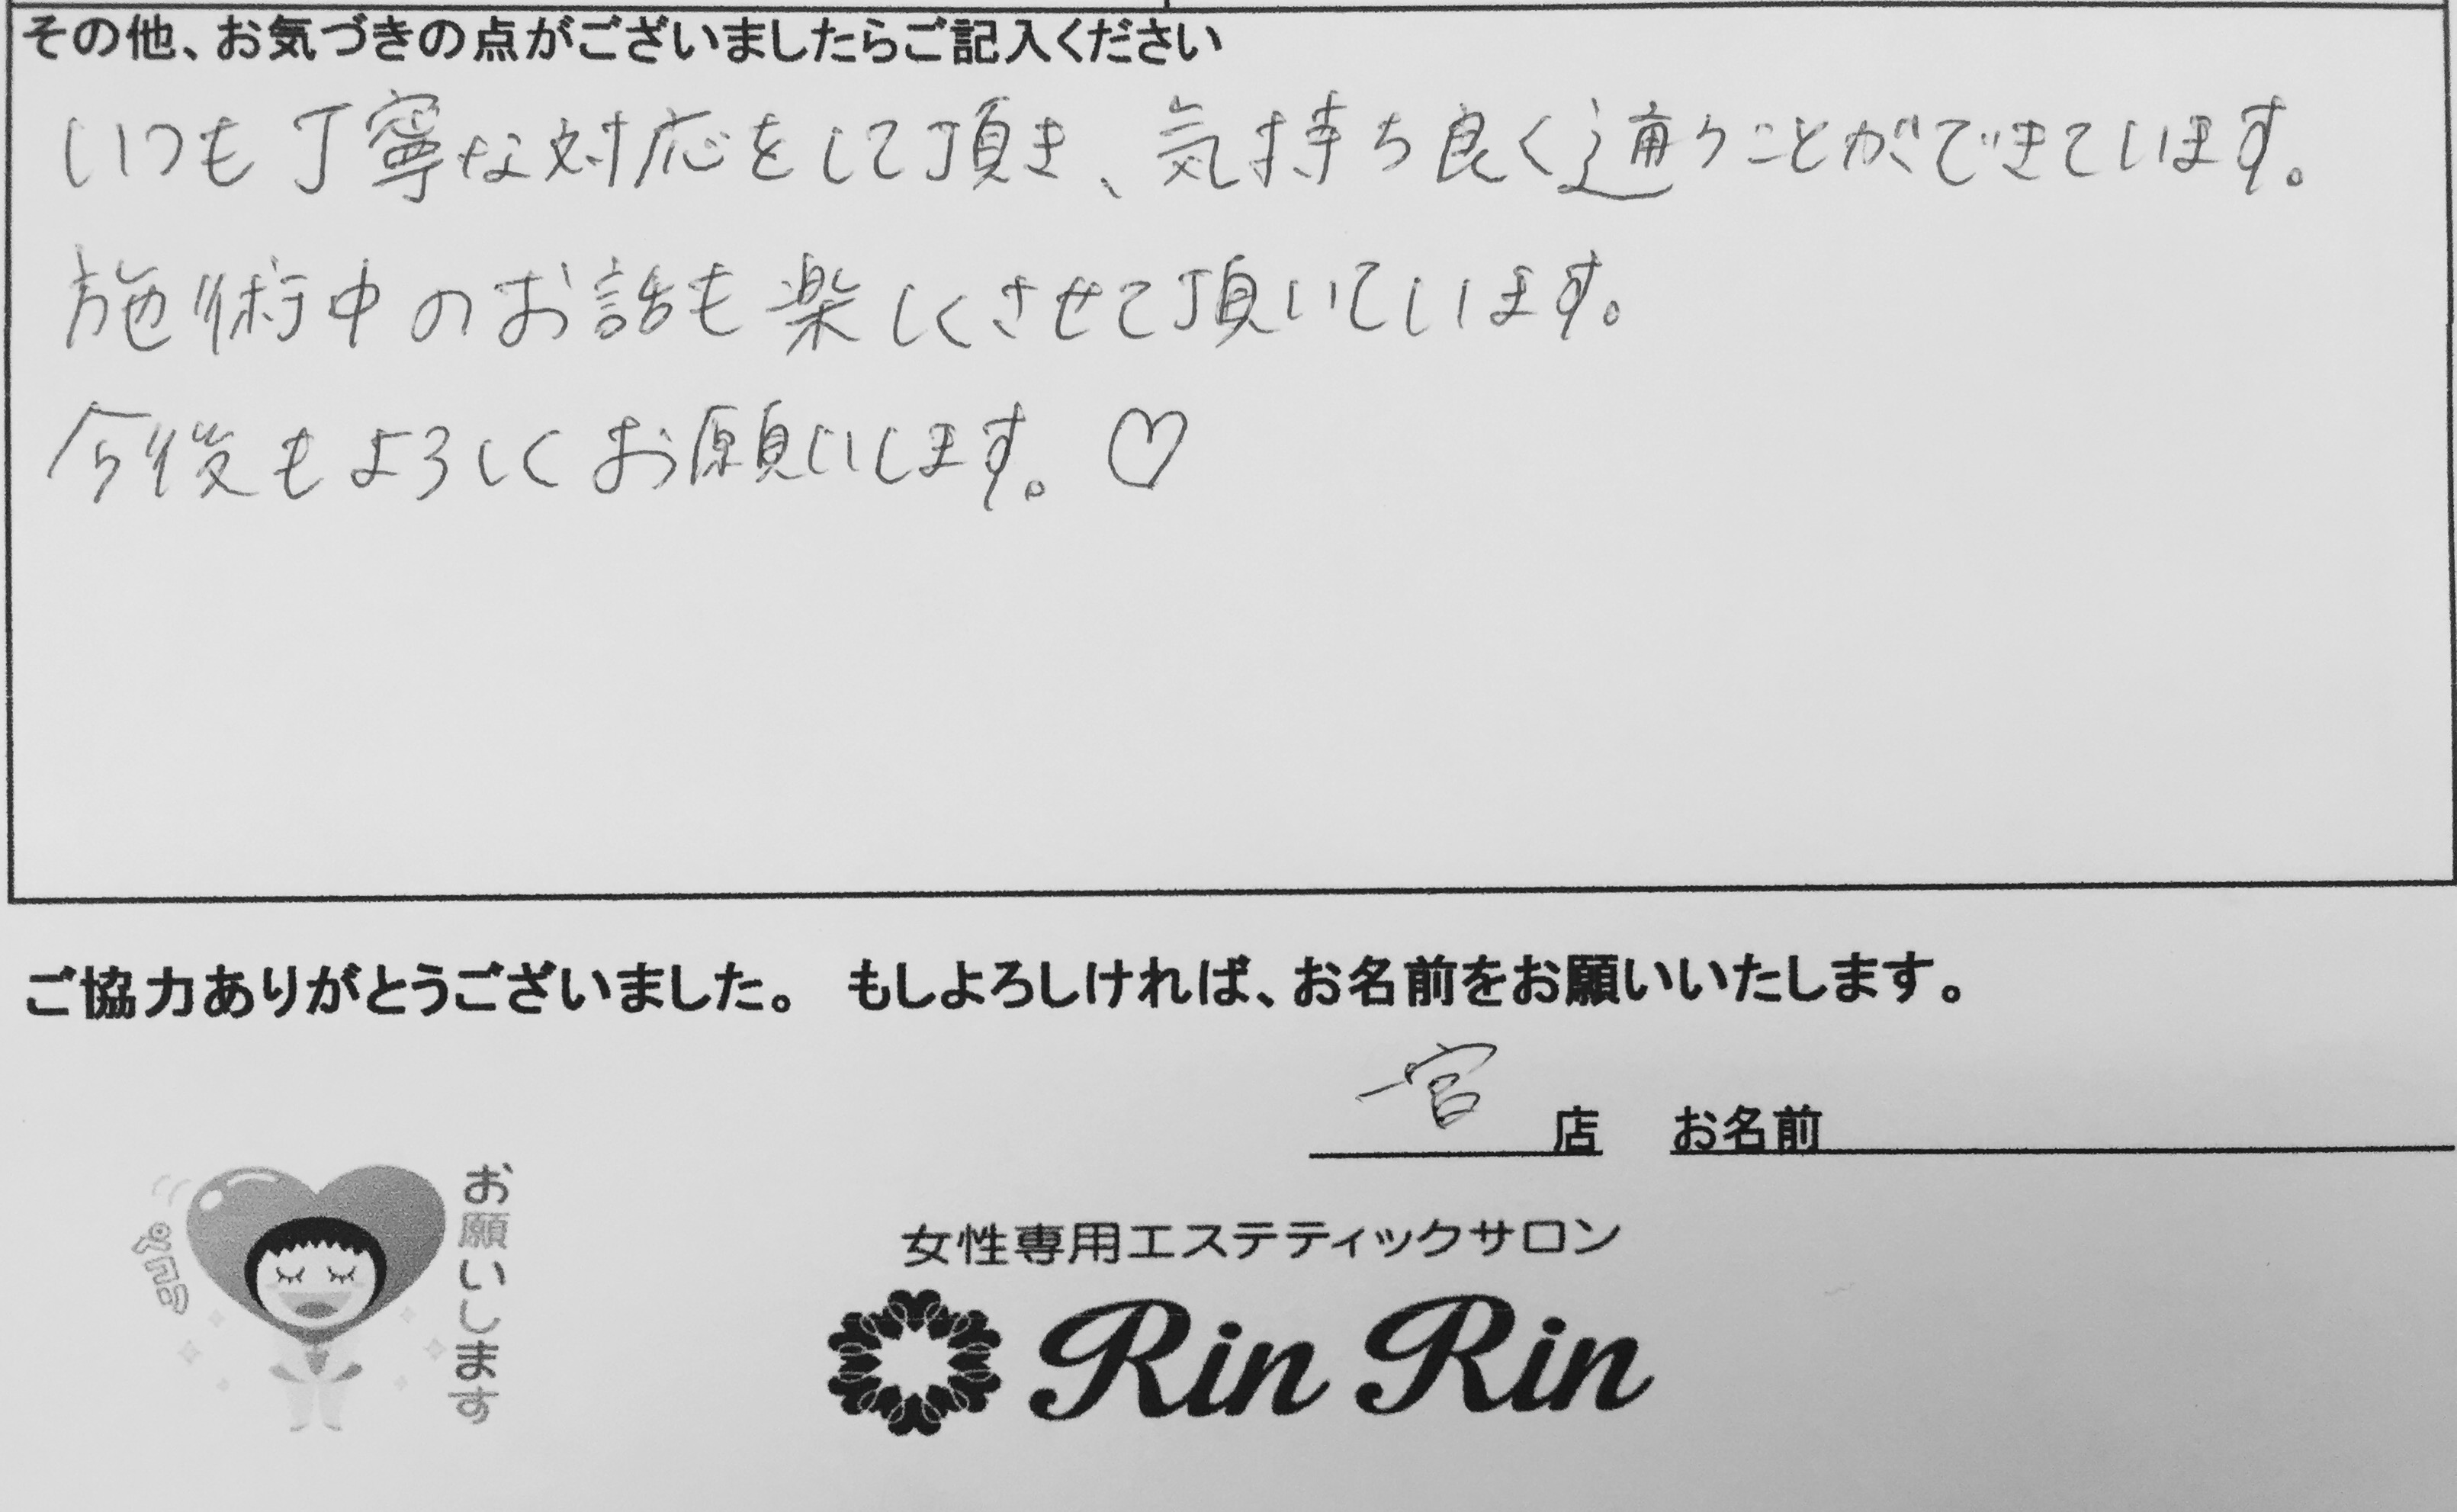 その他、お気づきの点がございましたらご記入ください
いつも丁寧な対応をして頂き、気持ち良く通うことができています。
施術中のお話も楽しくさせて頂いています。
今後もよろしくお願いします。♡
ご協力ありがとうございました。 もしよろしければ、お名前をお願いいたします。
一宮 店 お名前
お願いします
女性専用エステティックサロン
Rin Rin